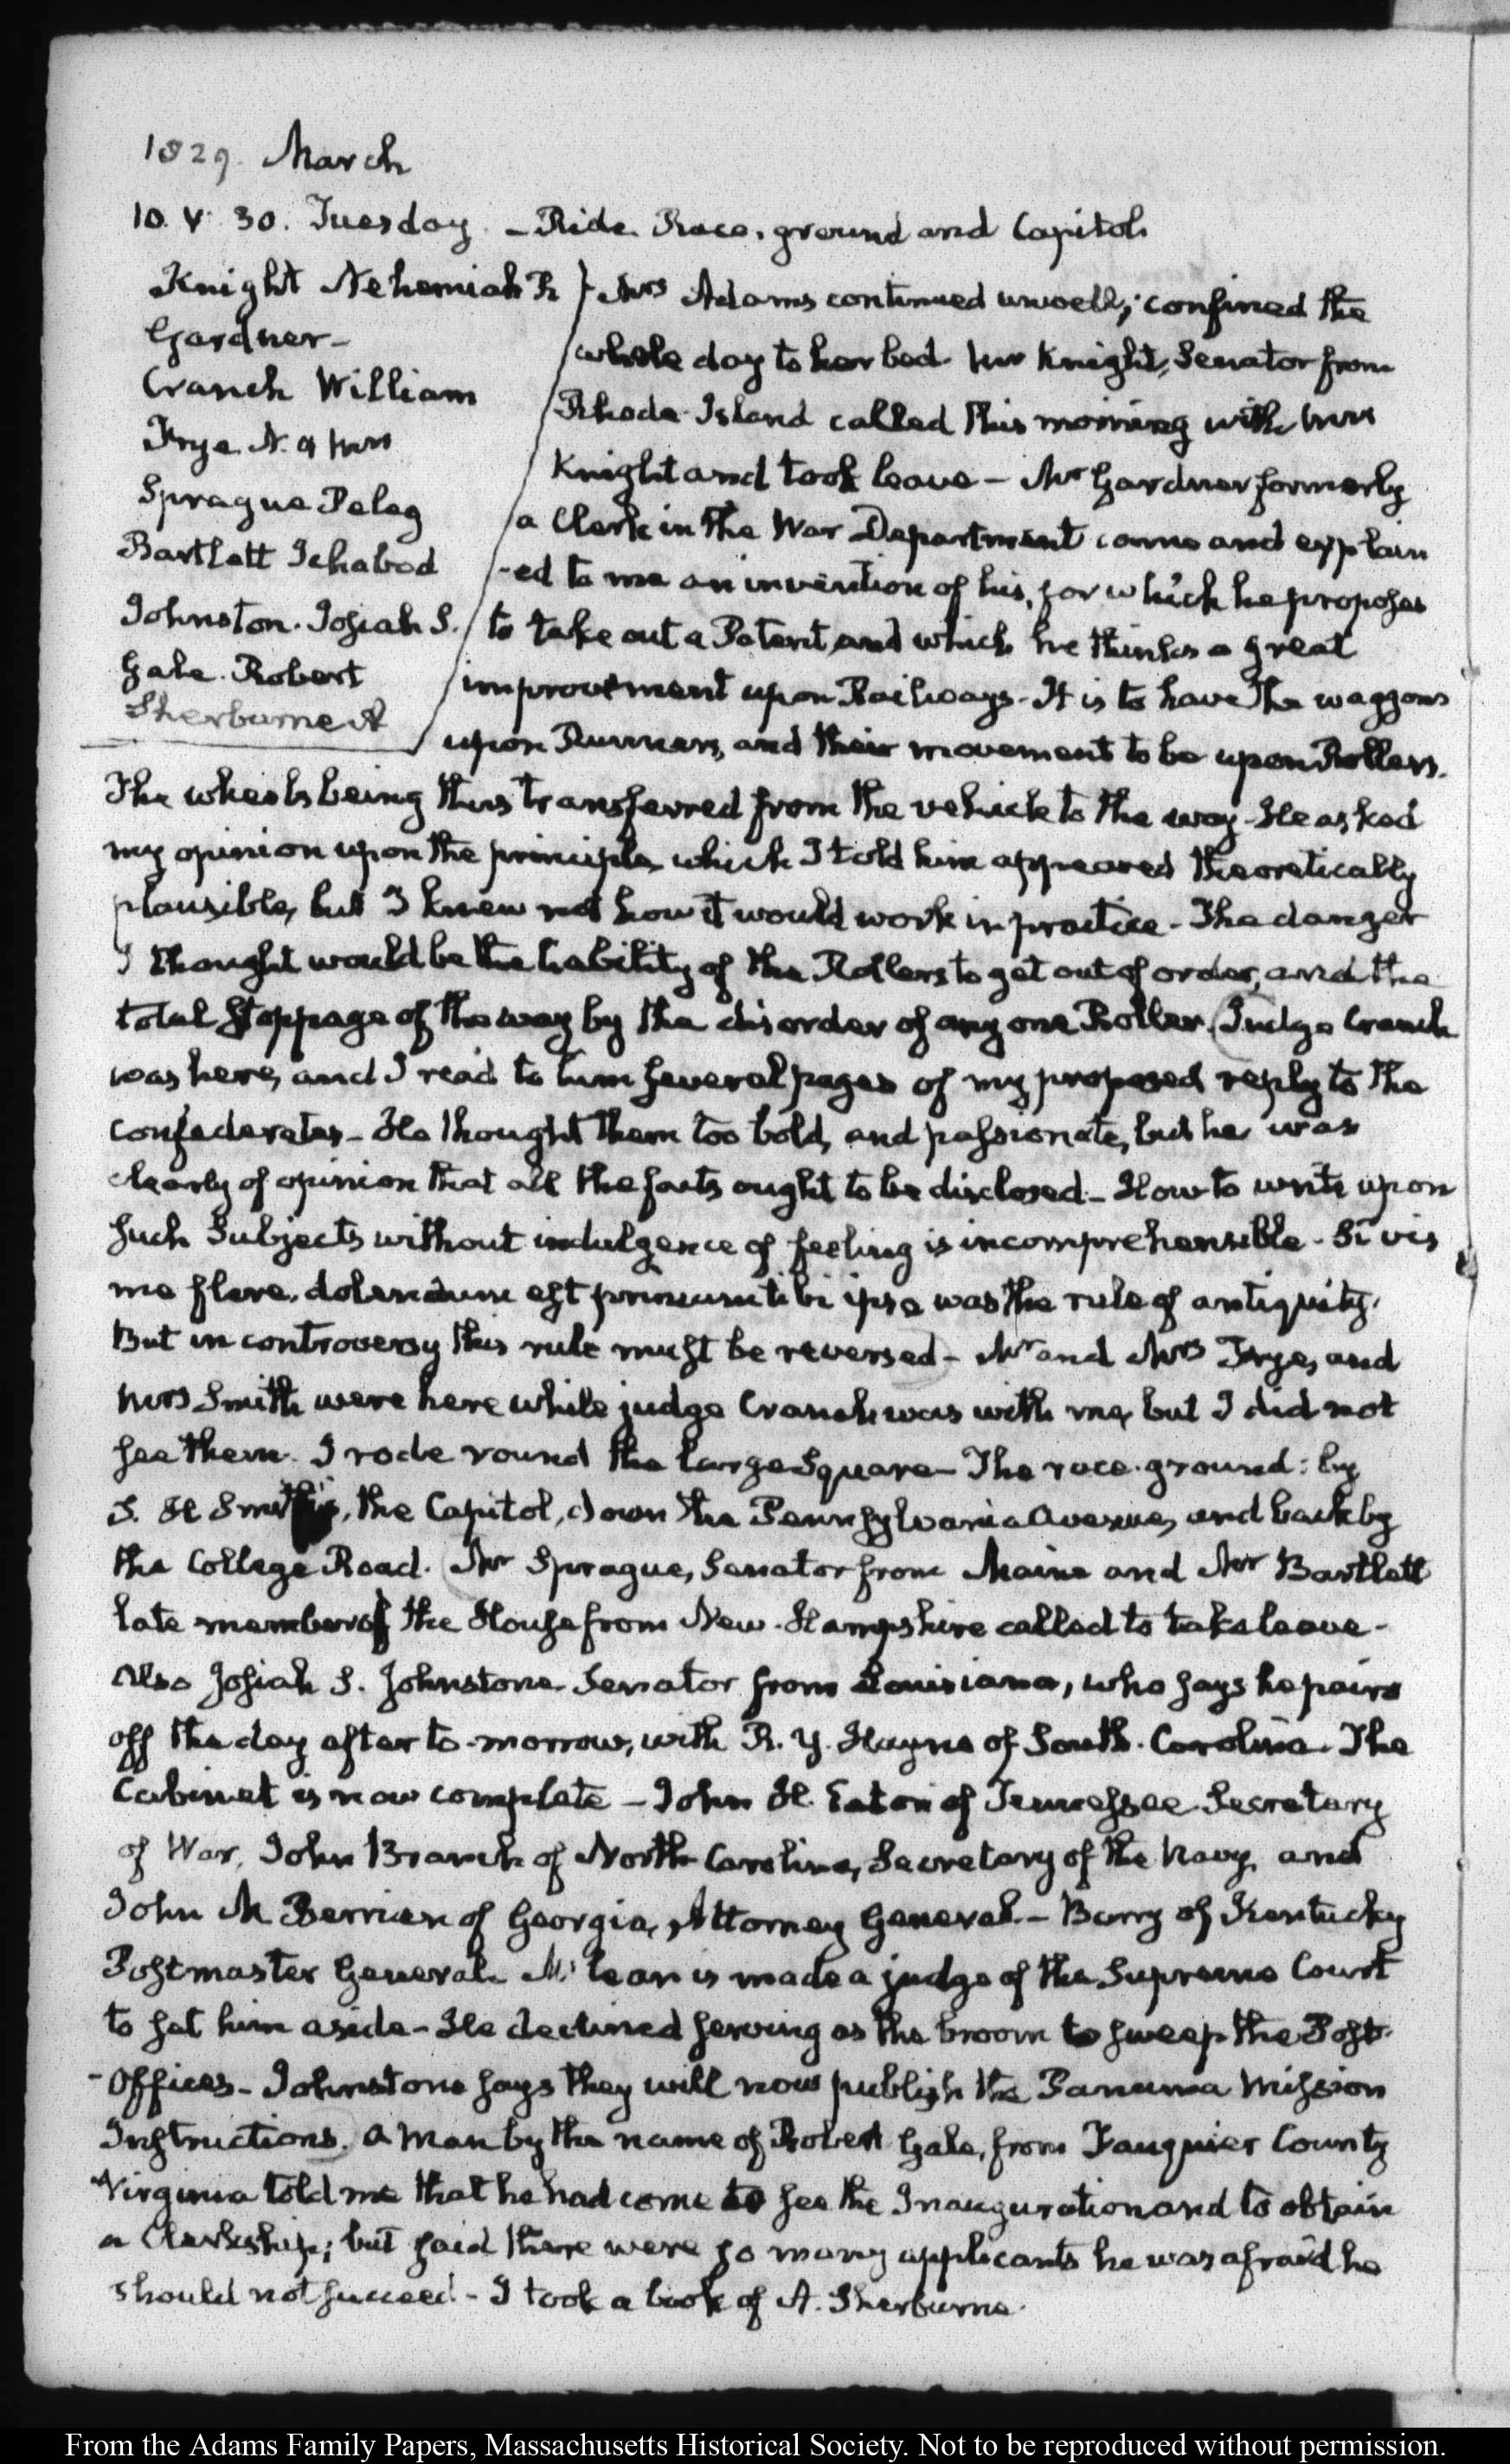 1829. March
10. V. 30. Tuesday. – Ride. Race. ground and Capitol.
Knight Nehemiah R
Gardner –
Cranch William
Frye. N. & Mrs
Sprague Peleg
Bartlett Ichabod
Johnston. Josiah S.
Gale. Robert
Sherburne A
Mrs Adams continued unwell; confined the
whole day to her bed. Mr Knight, Senator from
Rhode-Island called this morning with Mrs
Knight and took leave – Mr Gardner formerly
a Clerk in the War Department came and explain
-ed to me an invention of his, for which he proposes
to take out a Patent, and which he thinks a great
improvement upon Railways. It is to have the waggons
upon Runners, and their movement to be upon Rollers.
The wheels being thus transferred from the vehicle to the way. He asked
my opinion upon the principle which I told him appeared theoretically
plausible, but I knew not how it would work in practice – The danger
I thought would be the liability of the Rollers to get out of order, and the
total stoppage of the way by the disorder of any one Roller. Judge Cranch
was here, and I read to him several pages of my proposed reply to the
Confederates – He thought them too bold, and passionate, but he was
clearly of opinion that all the facts ought to be disclosed – How to write upon
such Subjects without indulgence of feeling is incomprehensible – Si vis
me flere, dolendum est primum tibi ipse was the rule of antiquity.
But in controversy this rule must be reversed – Mr and Mrs Frye, and
Mrs Smith were here while judge Cranch was with me, but I did not
see them. I rode round the large Square – The race-ground: by
S. H Smith's, the Capitol, down the Pennsylvania Avenue, and back by
the College Road. Mr Sprague, Senator from Maine and Mr Bartlett
late member of the House from New-Hampshire called to take leave –
Also Josiah S. Johnstone Senator from Louisiana, who says he pairs
off the day after to-morrow, with R. Y. Hayne of South-Carolina. The
Cabinet is now complete – John H. Eaton of Tennessee Secretary
of War, John Branch of North Carolina, Secretary of the Navy, and
John M Berrien of Georgia, Attorney General. – Barry of Kentucky
Postmaster General. McLean is made a judge of the Supreme Court
to set him aside – He declined serving as the broom to sweep the Post
-Offices – Johnstone says they will now publish the Panama Mission
Instructions. A Man by the name of Robert Gale, from Fauquier County
Virginia told me that he had come to see the Inauguration and to obtain
a Clerkship; but said there were so many applicants he was afraid he
should not succeed – I took a book of A. Sherburne.
From the Adams Family Papers, Massachusetts Historical Society. Not to be reproduced without permission.